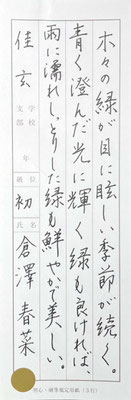 木々の緑が目に眩しい季節が続く。
青く澄んだ光に輝く緑も良ければ、
雨に濡れしっとりした緑も鮮やかで美しい。
佳玄 文部 学校 年 級位 初 氏名 倉澤春菜
硬心・硬筆鑑定用紙(3行)